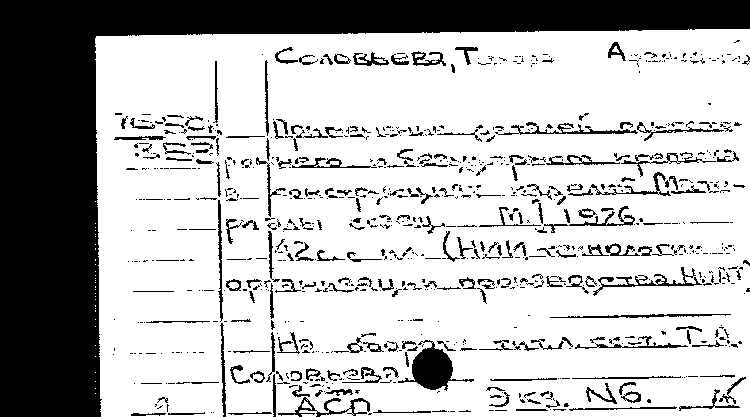 Соловьева, Тамара
Применение деталей односто-
роннего и безударного крепежа
в конструкциях изделий. Мате-
риалы совещ. М., 1976.
42 с. с ил. (НИИ технологии и
организации производства. НИАТ)
На обороте тит. л. сост.: Т.А.
Соловьева.
АСП. Экз. N6.